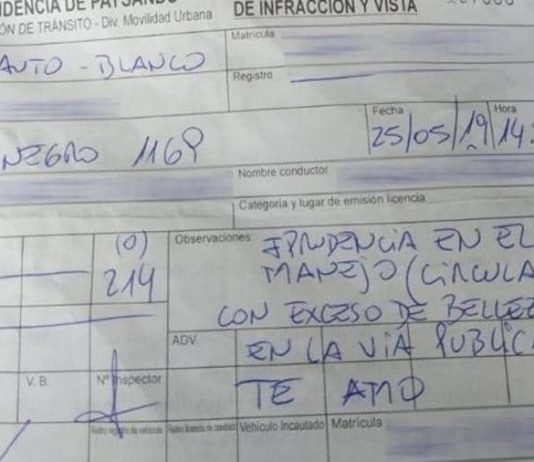 DENCIA DE PAYSANDÚ
ÓN DE TRÁNSITO - Div. Movilidad Urbana
DE INFRACCIÓN Y VISTA
Matrícula
AUTO - BLANCO
Registro
NEGRO 1169
Fecha
Hora
25/05/19
14:
Nombre conductor
Categoría y lugar de emisión licencia
(0)
214
Observaciones:
IPRUDENCIA EN EL
MANEJO (CIRCULA
CON EXCESO DE BELLEZ
ADV.
EN LA VIA PUBLIC
V. B.
Nº Inspector
TE AMO
Retiro registro de vehículo
Retiro licencia de conducir
Vehículo Incautado
Matrícula